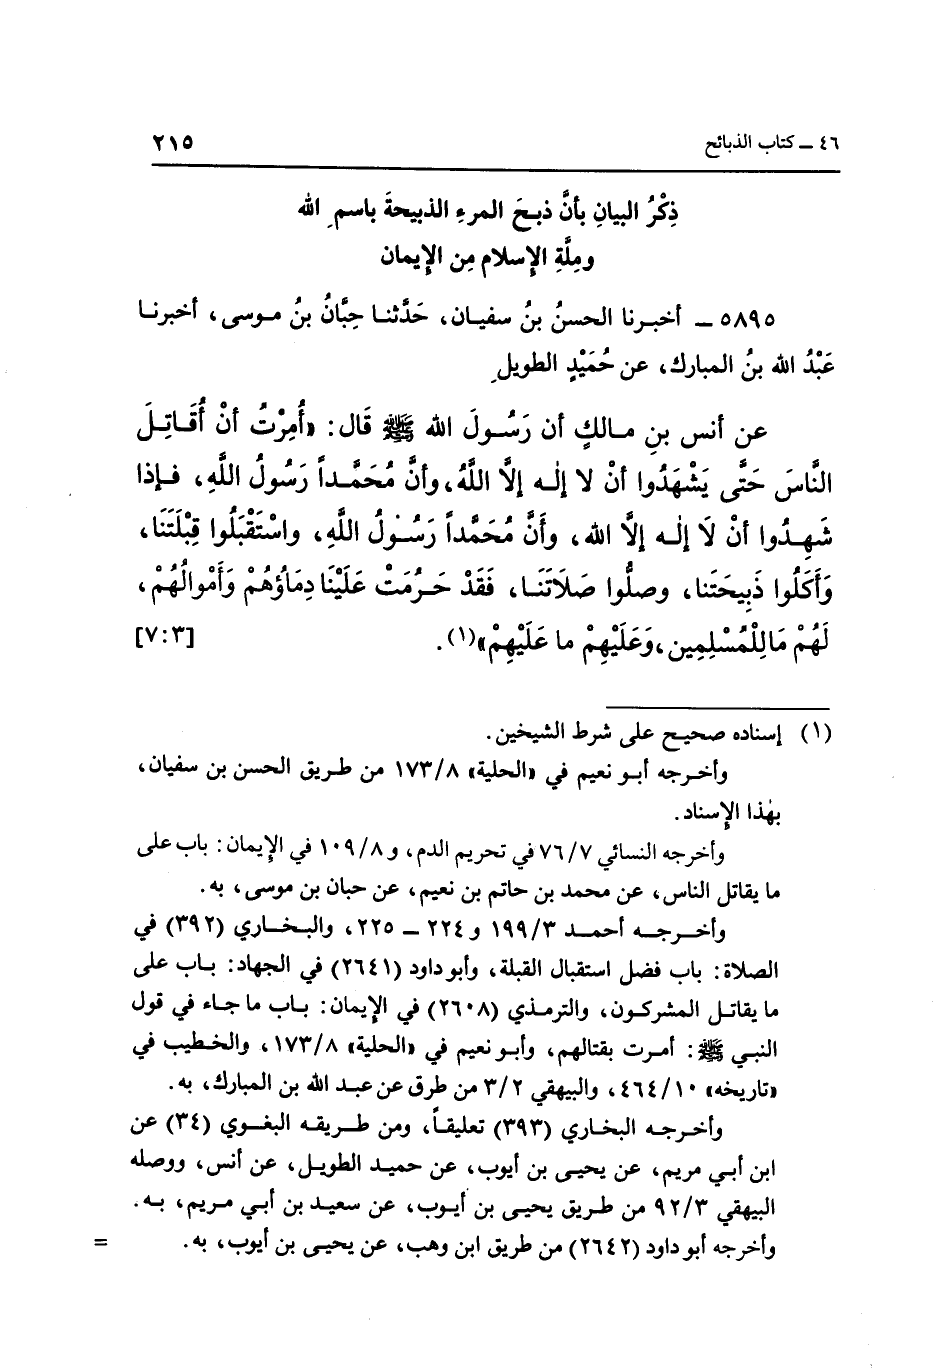 ٤٦ ــ كتاب الذبائح ٢١٥
ذِكْرُ البيانِ بأنَّ ذبحَ المرءِ الذبيحةَ باسمِ الله
ومِلَّةِ الإِسلام مِن الإِيمان
٥٨٩٥ ــ أخبرنا الحسنُ بنُ سفيان، حَدَّثنا حِبَّانُ بنُ موسى، أخبرنا
عَبْدُ الله بنُ المبارك، عن حُمَيْدٍ الطويلِ
عن أنس بنِ مالكٍ أن رَسُولَ الله ﷺ قَال: «أُمِرْتُ أنْ أُقَاتِلَ
النَّاسَ حَتَّى يَشْهَدُوا أنْ لا إلٰه إلَّا اللَّهُ، وأنَّ مُحَمَّداً رَسُولُ اللَّهِ، فإذا
شَهِدُوا أنْ لَا إلٰه إلَّا الله، وأَنَّ مُحَمَّداً رَسُولُ اللَّهِ، واسْتَقْبَلُوا قِبْلَتَنَا،
وَأَكَلُوا ذَبِيحَتَنا، وصلُّوا صَلَاتَنَا، فَقَدْ حَرُمَتْ عَلَيْنَا دِمَاؤُهُمْ وَأَمْوالُهُمْ،
لَهُمْ مَا لِلْمُسْلِمِين، وَعَلَيْهِمْ ما عَلَيْهِمْ»(١). [٧:٣]
(١) إسناده صحيح على شرط الشيخين.
وأخرجه أبو نعيم في «الحلية» ١٧٣/٨ من طريق الحسن بن سفيان،
بهٰذا الإِسناد.
وأخرجه النسائي ٧٦/٧ في تحريم الدم، و ١٠٩/٨ في الإِيمان: باب على
ما يقاتل الناس، عن محمد بن حاتم بن نعيم، عن حبان بن موسى، به.
وأخرجه أحمد ١٩٩/٣ و ٢٢٤ ــ ٢٢٥، والبخاري (٣٩٢) في
الصلاة: باب فضل استقبال القبلة، وأبو داود (٢٦٤١) في الجهاد: باب على
ما يقاتل المشركون، والترمذي (٢٦٠٨) في الإِيمان: باب ما جاء في قول
النبي ﷺ: أمرت بقتالهم، وأبو نعيم في «الحلية» ١٧٣/٨، والخطيب في
«تاريخه» ٤٦٤/١٠، والبيهقي ٣/٢ من طرق عن عبد الله بن المبارك، به.
وأخرجه البخاري (٣٩٣) تعليقاً، ومن طريقه البغوي (٣٤) عن
ابن أبي مريم، عن يحيى بن أيوب، عن حميد الطويل، عن أنس، ووصله
البيهقي ٩٢/٣ من طريق يحيى بن أيوب، عن سعيد بن أبي مريم، به.
وأخرجه أبو داود (٢٦٤٢) من طريق ابن وهب، عن يحيى بن أيوب، به. =